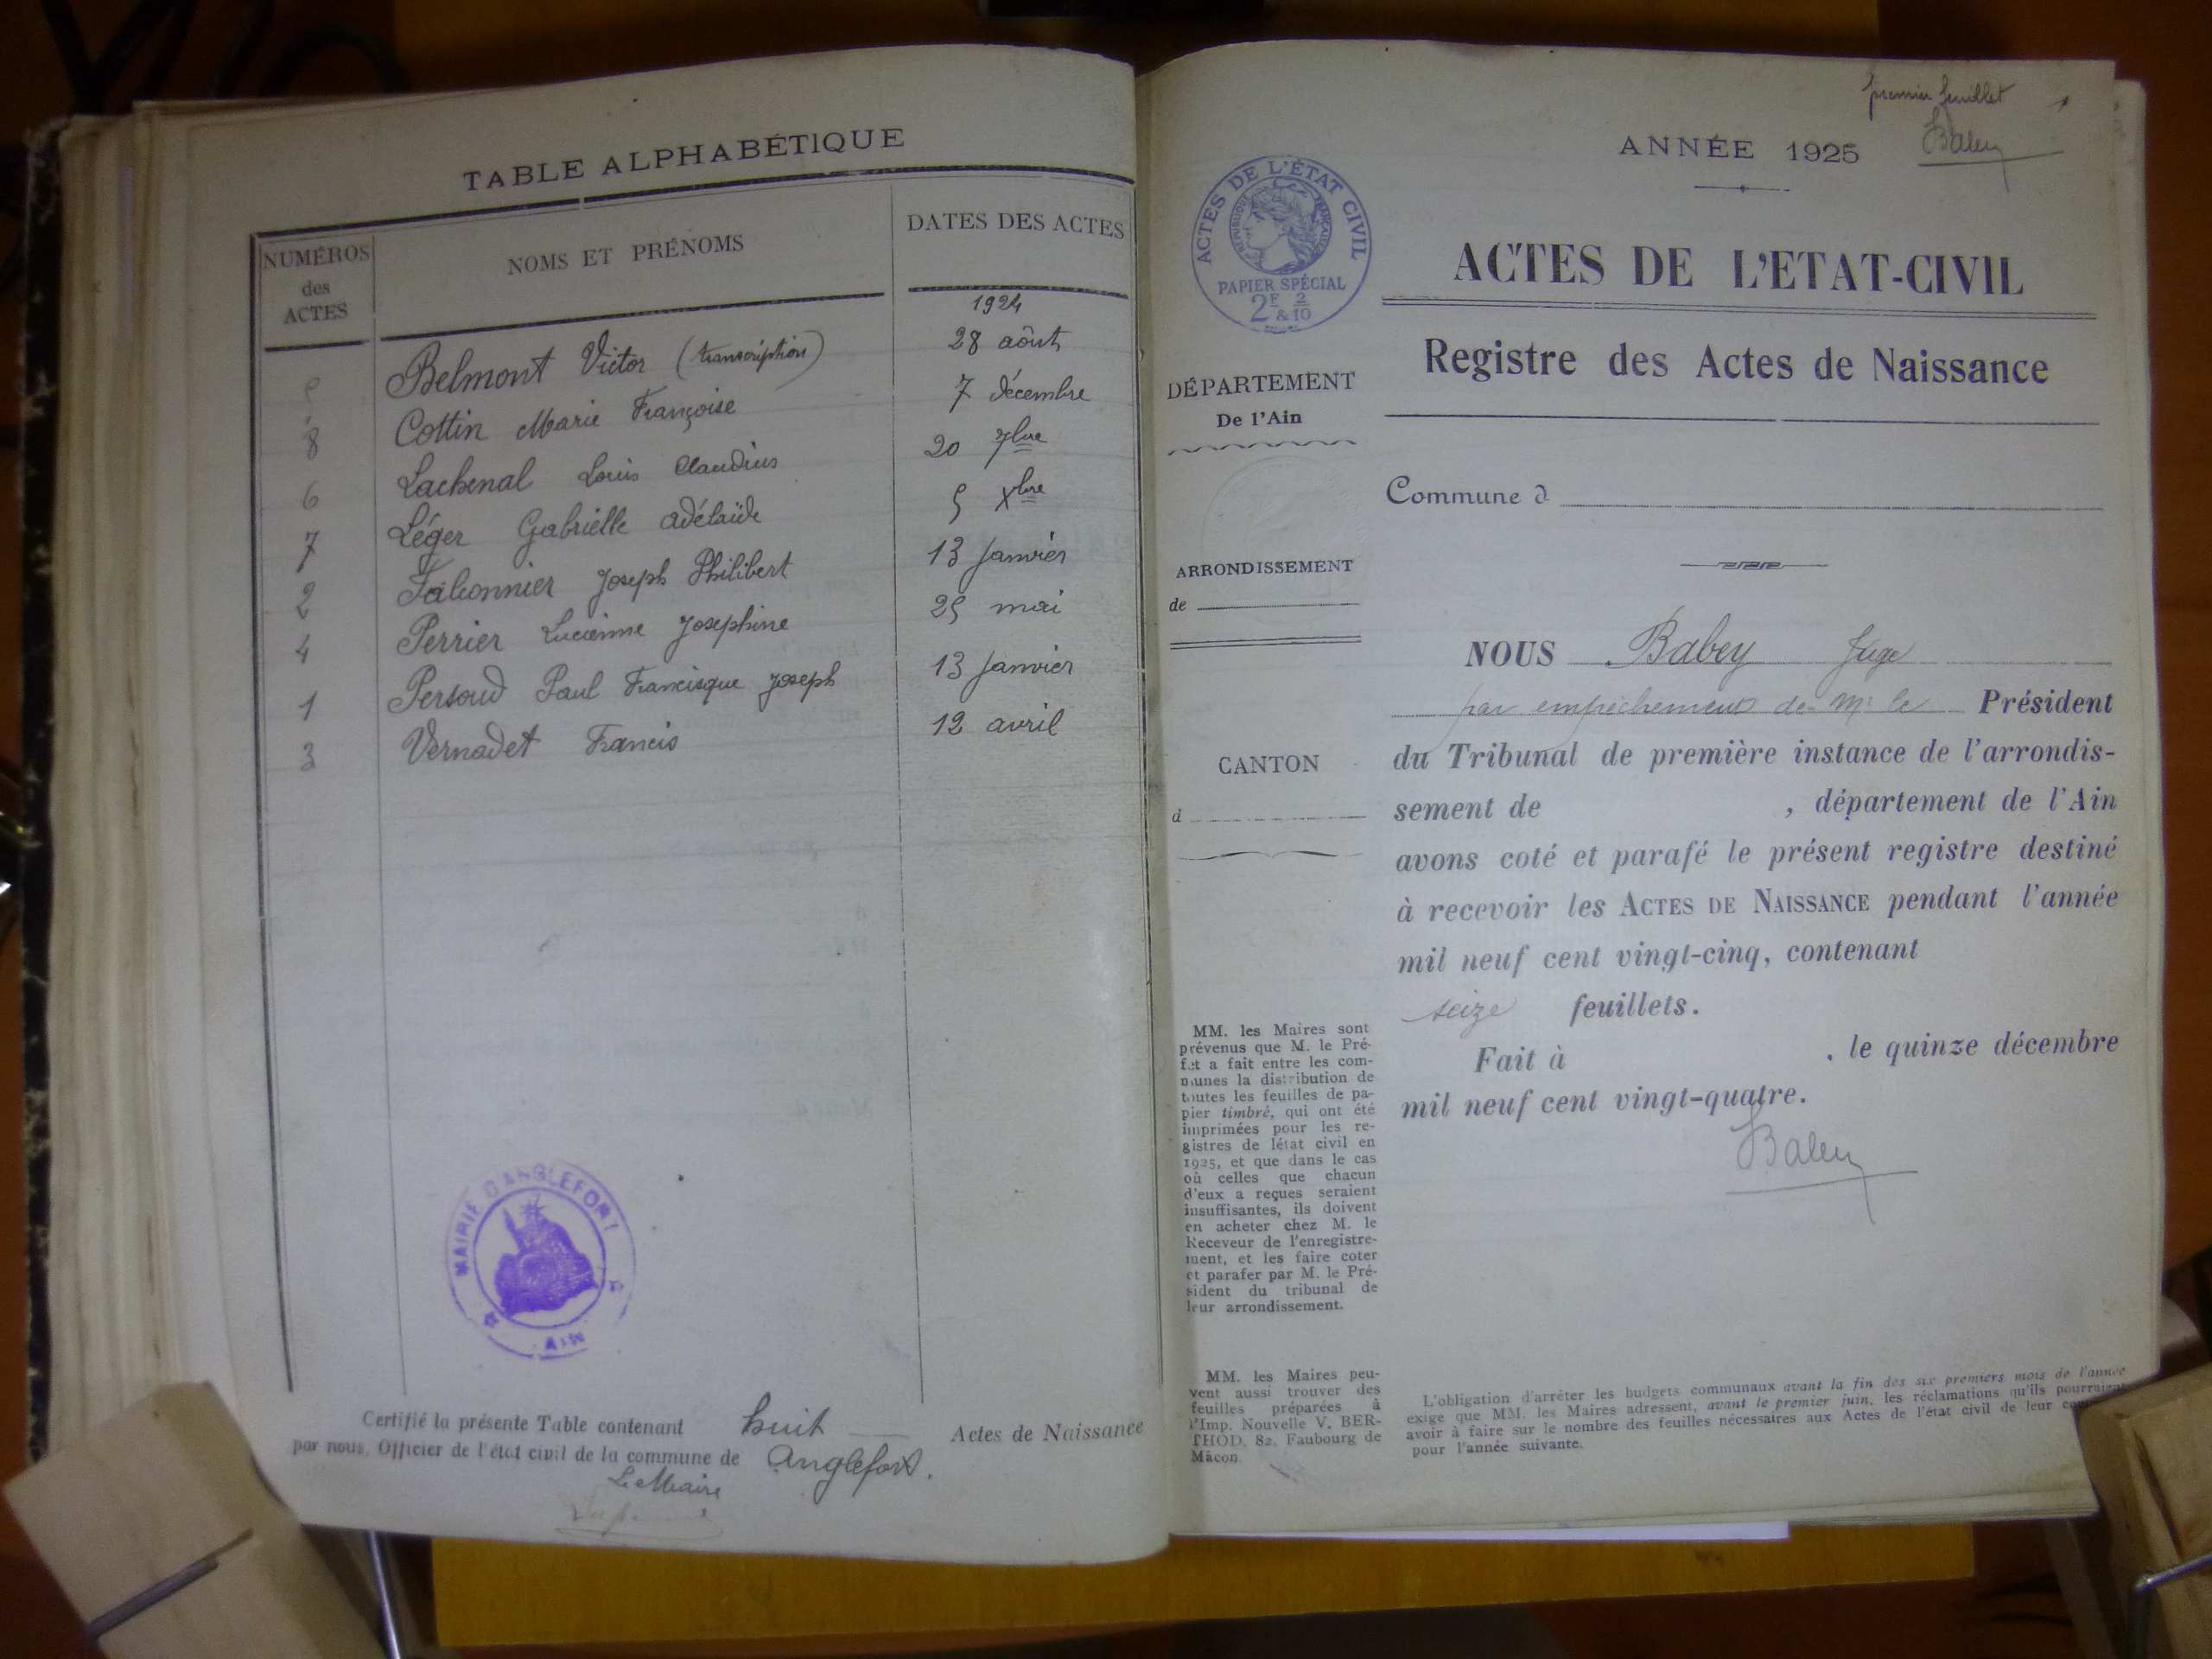 TABLE ALPHABÉTIQUE
NUMÉROS des ACTES
NOMS ET PRÉNOMS
DATES DES ACTES
1924
5 Belmont Victor (transcription) 28 août
8 Cottin Marie Françoise 7 décembre
6 Lachenal Louis Claudius 20 7bre
7 Léger Gabrielle Adélaïde 5 Xbre
2 Joseph Philibert 13 Janvier
4 Perrier Lucienne Josephine 25 mai
1 Persoud Paul Francisque Joseph 13 Janvier
3 Vernadet Francis 12 avril
MAIRIE D'ANGLEFORT
AIN
Certifié la présente Table contenant huit Actes de Naissance
par nous, Officier de l'état civil de la commune de Anglefort.
Le Maire
premier feuillet
ANNÉE 1925
ACTES DE L'ÉTAT CIVIL
RÉPUBLIQUE FRANÇAISE
PAPIER SPÉCIAL
2F 2
& 10
ACTES DE L'ETAT-CIVIL
Registre des Actes de Naissance
DÉPARTEMENT
De l'Ain
Commune d
ARRONDISSEMENT
de
CANTON
d
NOUS Babey Juge
par empêchement de Mr le Président
du Tribunal de première instance de l'arrondis-
sement de , département de l'Ain
avons coté et parafé le présent registre destiné
à recevoir les ACTES DE NAISSANCE pendant l'année
mil neuf cent vingt-cinq, contenant
seize feuillets.
Fait à , le quinze décembre
mil neuf cent vingt-quatre.
MM. les Maires sont
prévenus que M. le Pré-
fet a fait entre les com-
munes la distribution de
toutes les feuilles de pa-
pier timbré, qui ont été
imprimées pour les re-
gistres de létat civil en
1925, et que dans le cas
où celles que chacun
d'eux a reçues seraient
insuffisantes, ils doivent
en acheter chez M. le
Receveur de l'enregistre-
ment, et les faire coter
et parafer par M. le Pré-
sident du tribunal de
leur arrondissement.
MM. les Maires peu-
vent aussi trouver des
feuilles préparées à
l'Imp. Nouvelle V. BER-
THOD, 82, Faubourg de
Mâcon.
L'obligation d'arrêter les budgets communaux avant la fin des six premiers mois de l'année
exige que MM. les Maires adressent, avant le premier juin, les réclamations qu'ils pourraient
avoir à faire sur le nombre des feuilles nécessaires aux Actes de l'état civil de leur
pour l'année suivante.